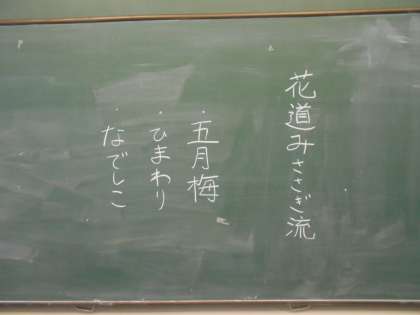 花道みささぎ流
・五月梅
・ひまわり
・なでしこ